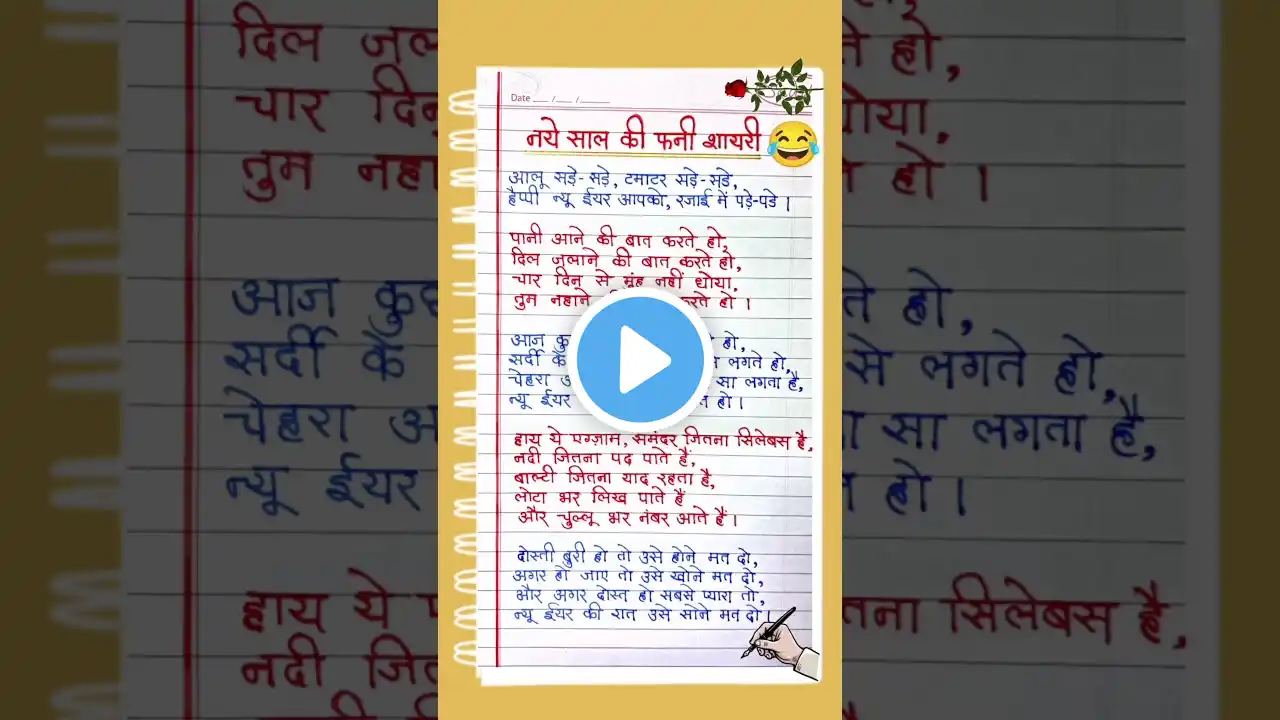 Date ___ / ___ / ______
नये साल की फनी शायरी
आलू सड़े-सड़े, टमाटर सड़े-सड़े,
हैप्पी न्यू ईयर आपको, रजाई में पड़े-पडे ।
पानी आने की बात करते हो,
दिल जलाने की बात करते हो,
चार दिन से मुंह नहीं धोया,
तुम नहाने करते हो ।
आज कु हो,
सर्दी लगते हो,
चेहरा सा लगता है,
न्यू ईयर हो ।
हाय ये एग्ज़ाम, समंदर जितना सिलेबस है,
नदी जितना पढ पाते हैं,
बाल्टी जितना याद रहता है,
लोटा भर लिख पाते हैं
और चुल्लू भर नंबर आते हैं ।
दोस्ती बुरी हो तो उसे होने मत दो,
अगर हो जाए तो उसे खोने मत दो,
और अगर दोस्त हो सबसे प्यारा तो,
न्यू ईयर की रात उसे सोने मत दो ।
दिल जल
ते हो,
चार दिन
धोया,
तुम नहा
हो ।
आज कुछ
ते हो,
सर्दी के
से लगते हो,
चेहरा
सा लगता है,
न्यू ईयर
हो ।
हाय ये
तना सिलेबस है,
नदी जित